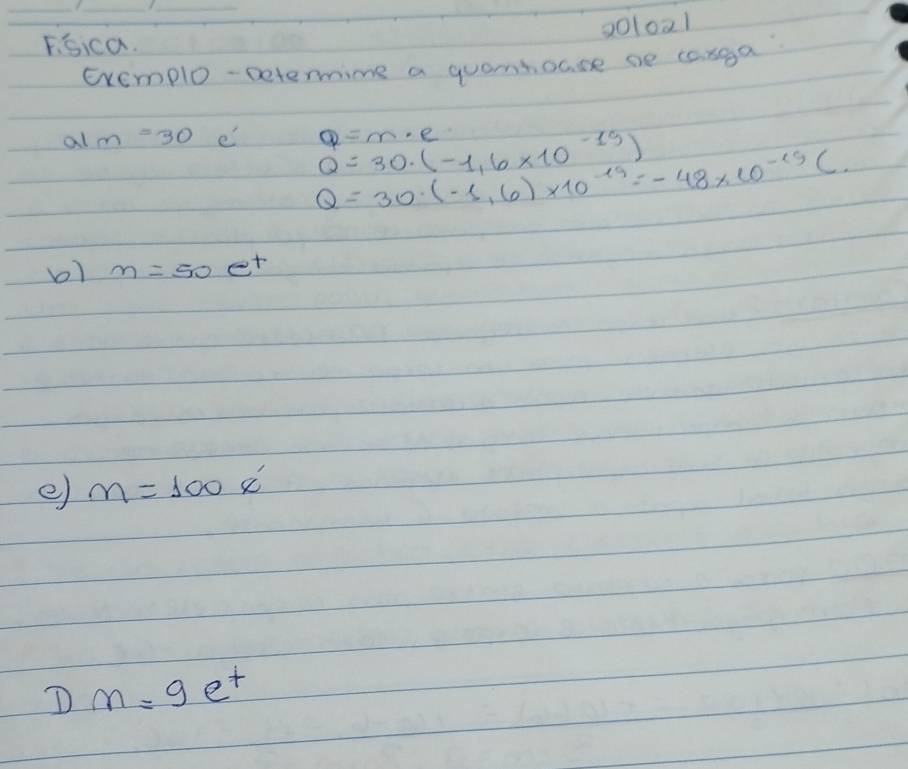 Física. 20/02/
Exemplo - Determine a quantidade de carga
a) n = 30 e⁻ Q = n · e
Q = 30 · (-1,6 × 10⁻¹⁹)
Q = 30 · (-1,6) × 10⁻¹⁹ = -48 × 10⁻¹⁹ C.
b) n = 50 e⁺
c) n = 100 e⁻
D n = 9 e⁺